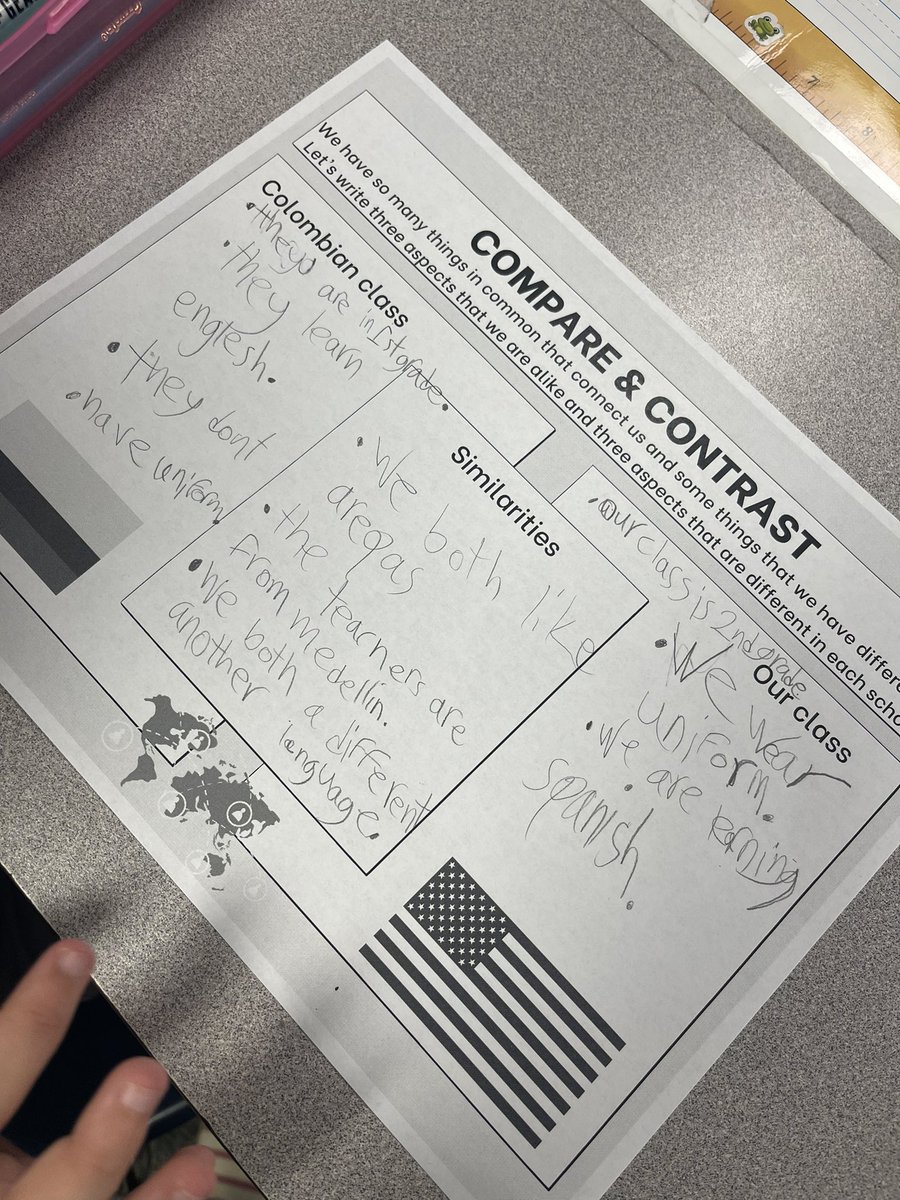 COMPARE & CONTRAST
We have so many things in common that connect us and some things that we have differe
Let's write three aspects that we are alike and three aspects that are different in each scho
Colombian class
• they are in 1st grade.
• they learn
englesh.
• they dont
• have uniform
Similarities
• We both like
arepas
• the teachers are
from medellin.
• We both a different
another language.
Our class
• our class is 2nd grade
• We wear
uniform.
• we are lerning
spanish.
7
8